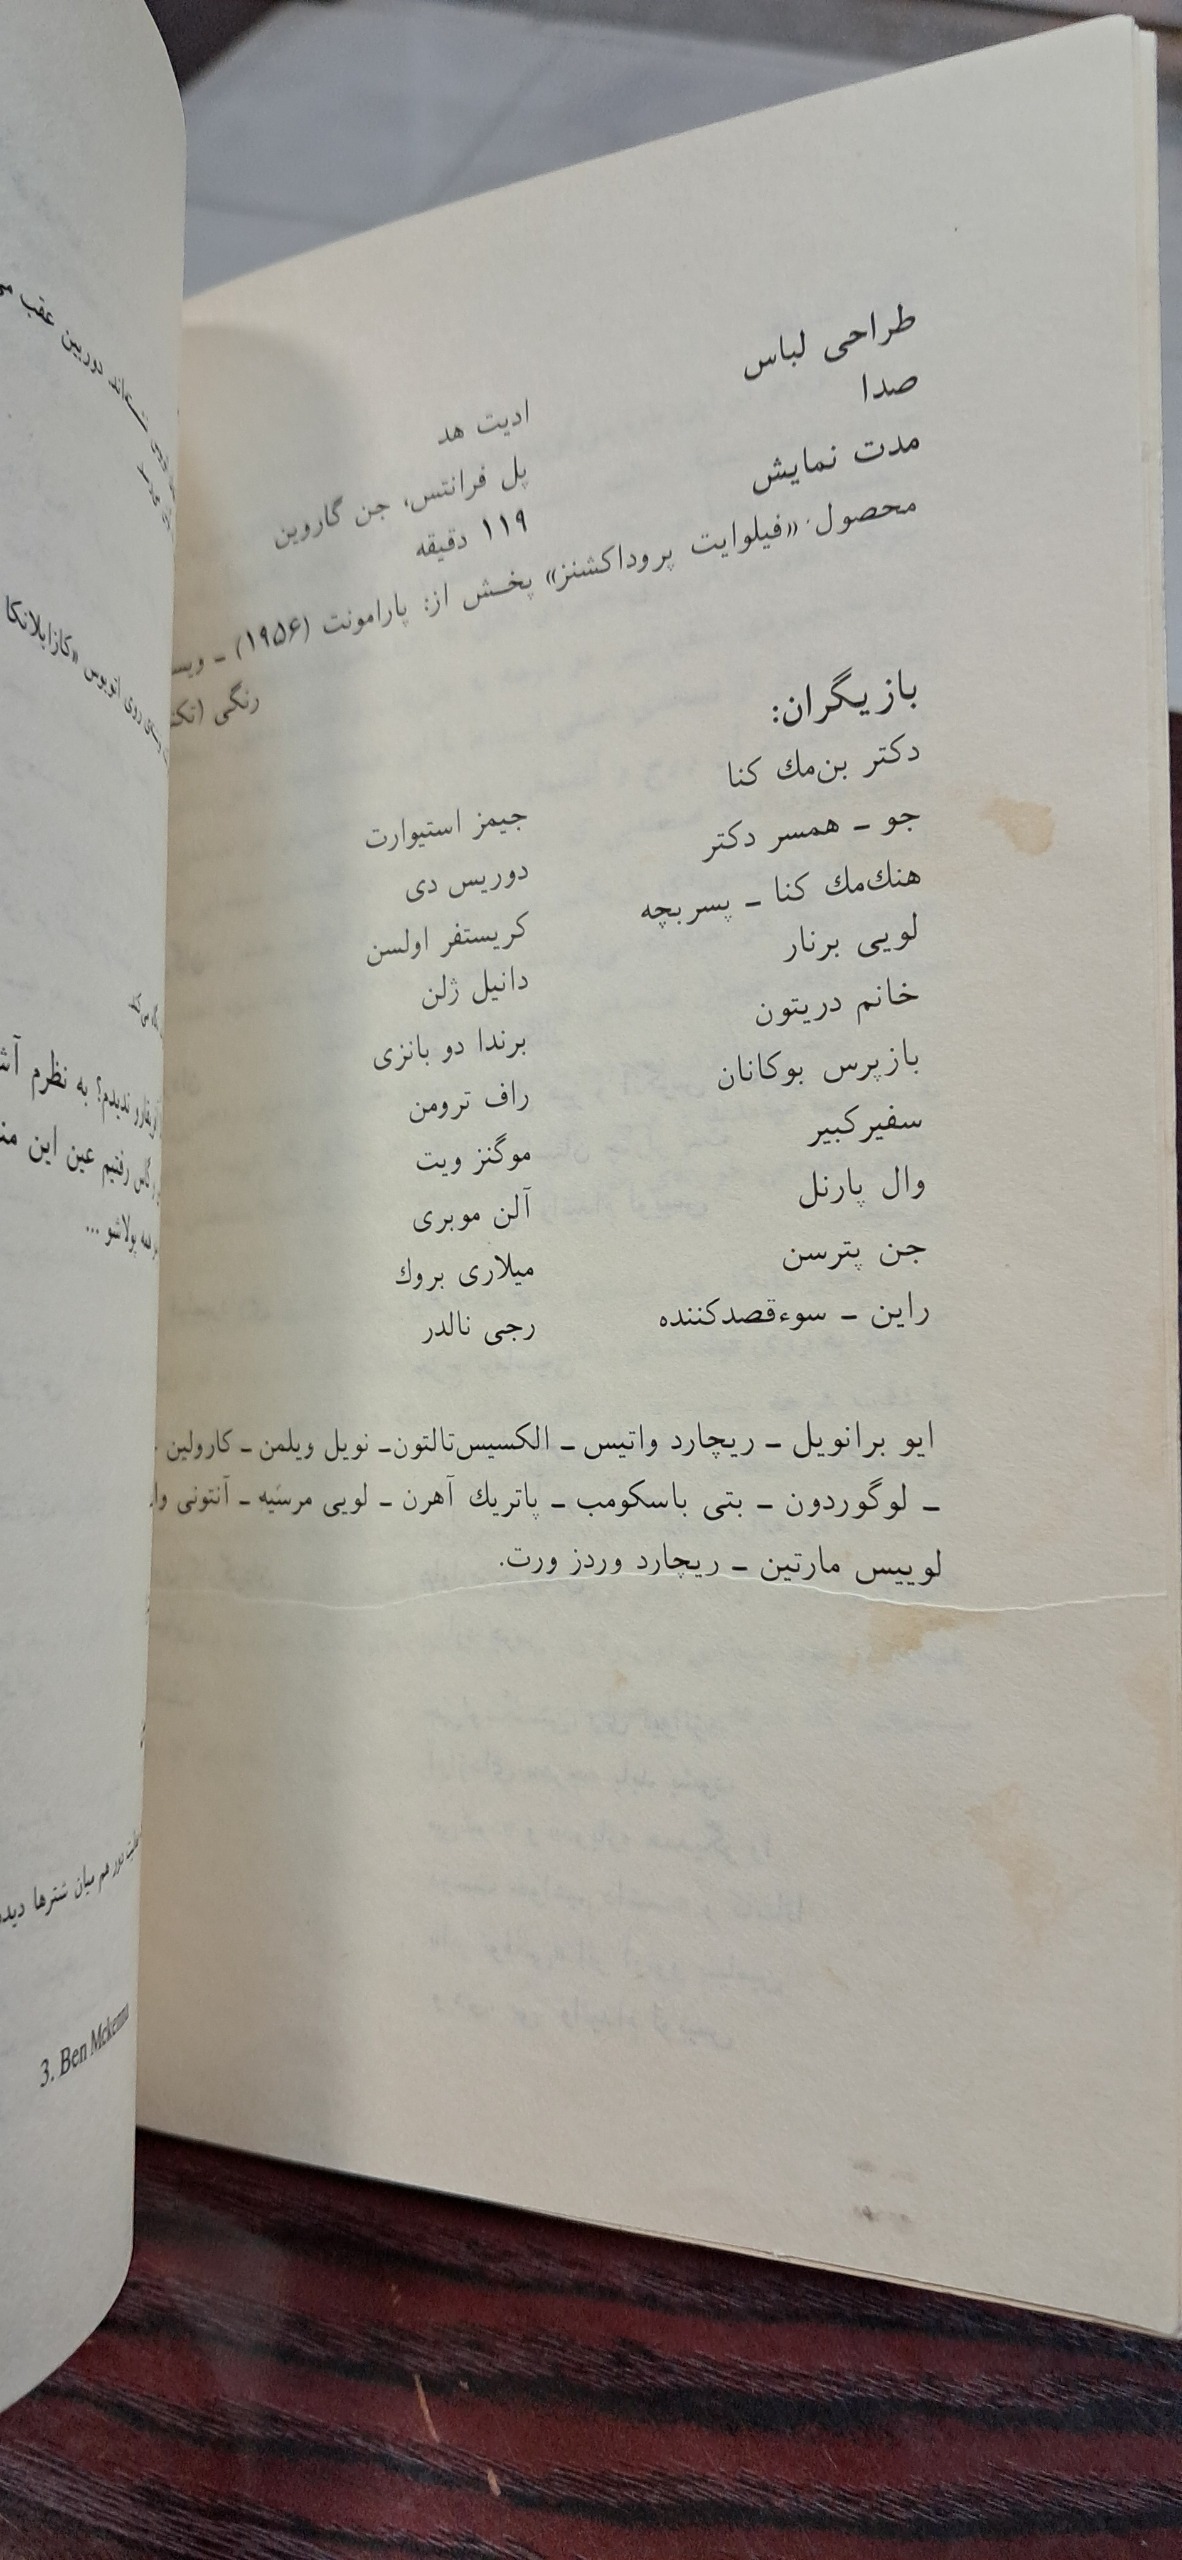 طراحی لباس ادیت هد
صدا پل فرانتس، جن گاروین
مدت نمایش ۱۱۹ دقیقه
محصول «فیلوایت پروداکشنز» پخش از: پارامونت (۱۹۵۶) ـ
رنگی
بازیگران:
دکتر بن‌مك کنا جیمز استیوارت
جو ـ همسر دکتر دوریس دی
هنك‌مك کنا ـ پسربچه کریستفر اولسن
لویی برنار دانیل ژلن
خانم دریتون برندا دو بانزی
بازپرس بوکانان راف ترومن
سفیرکبیر موگنز ویت
وال پارنل آلن موبری
جن پترسن میلاری بروك
راین ـ سوءقصدکننده رجی نالدر
ایو برانویل ـ ریچارد واتیس ـ الکسیس‌تالتون ـ نویل ویلمن ـ کارولین
ـ لوگوردون ـ بتی باسکومب ـ پاتریك آهرن ـ لویی مرسیه ـ آنتونی
لوییس مارتین ـ ریچارد وردز ورت.
دوربین عقب
روی اتوبوس «کازابلانکا
ندیدم؟ به نظرم
رفتیم عین این
همه پولاشو ...
دور هم میان شترها
3. Ben Mckenna